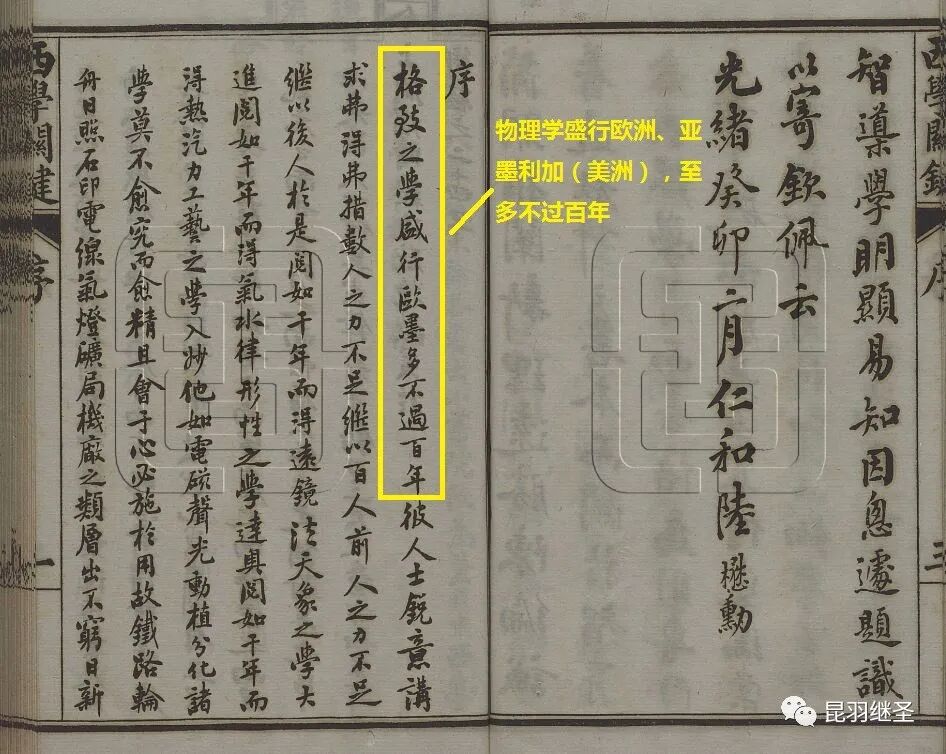 西學關鍵 序 三
智導學明顯易知因悤遽題識
以寄欽佩云
光緒癸卯二月仁和陸懋勳
序
格致之學盛行歐墨多不過百年彼人士銳意講
求弗得弗措數人之力不足繼以百人前人之力不足
繼以後人於是閱如千年而得遠鏡法天象之學大
進閱如千年而得氣水律形性之學達奧閱如千年而
得熱汽力工藝之學入妙他如電磁聲光動植分化諸
學莫不愈究而愈精且會于心必施於用故鐵路輪
舟日照石印電線氣燈礦局機廠之類層出不窮日新
西學關鍵 序 一
物理学盛行欧洲、亚
墨利加（美洲），至
多不过百年
昆羽继圣